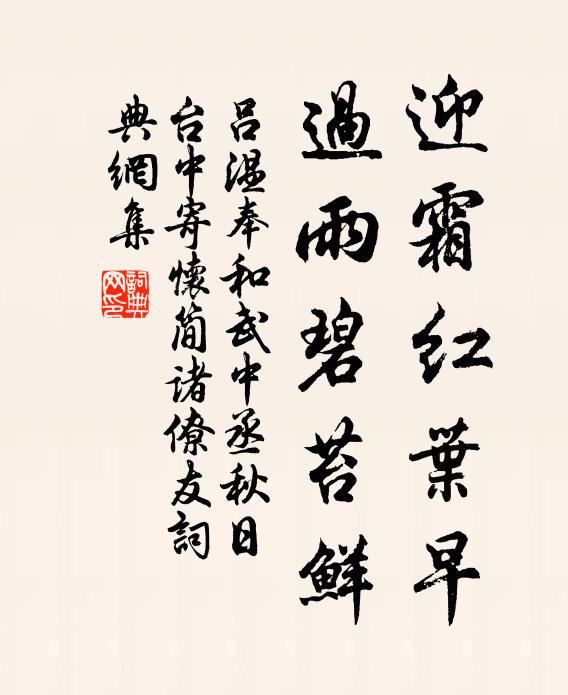 迎霜紅葉早
過雨碧苔鮮
呂溫奉和武中丞秋日
台中寄懷簡諸僚友詞
典網集
詞典
网印